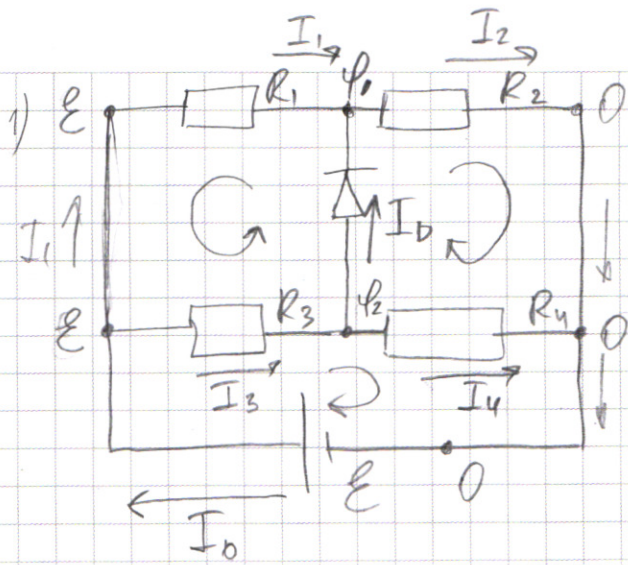 I₁ I₂
1) ℰ R₁ φ₁ R₂ 0
I₁ I_D
ℰ R₃ φ₂ R₄ 0
I₃ I₄
ℰ 0
I₀